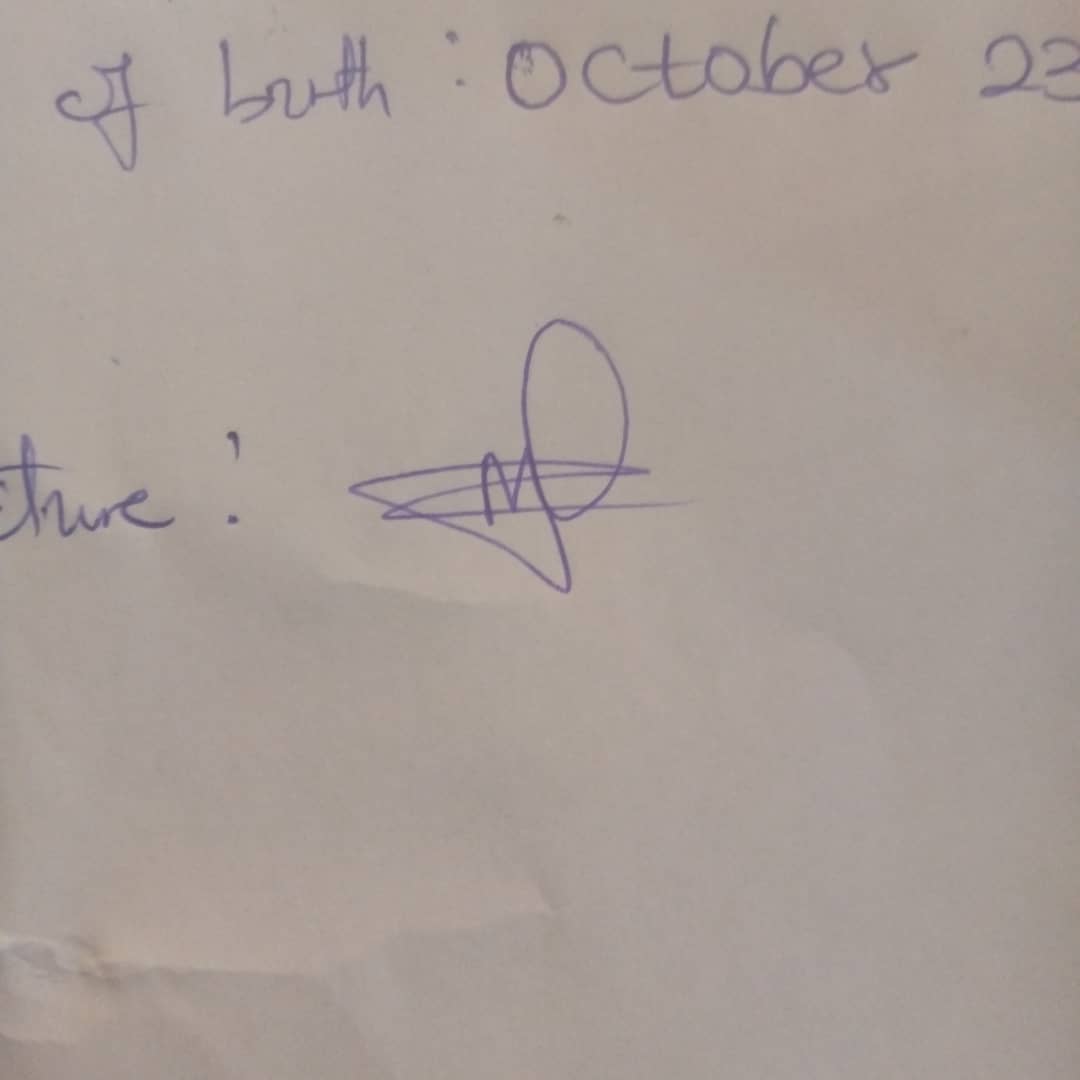 of birth : October 23
ture :